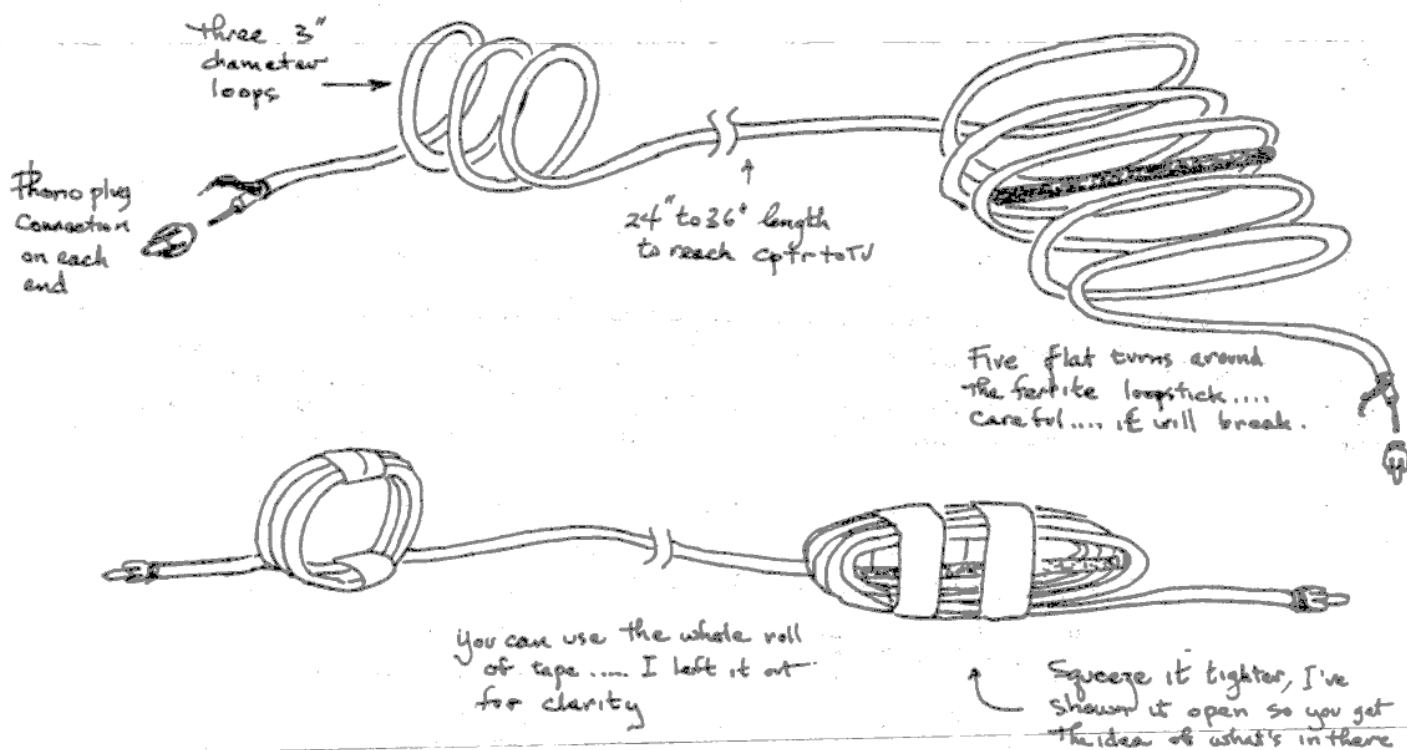 three 3"
diameter
loops
Phono plug
Connection
on each
end
24" to 36" length
to reach cptr to TV
Five flat turns around
the ferrite loopstick....
careful.... it will break.
you can use the whole roll
of tape..... I left it out
for clarity
Squeeze it tighter, I've
shown it open so you get
the idea of what's in there